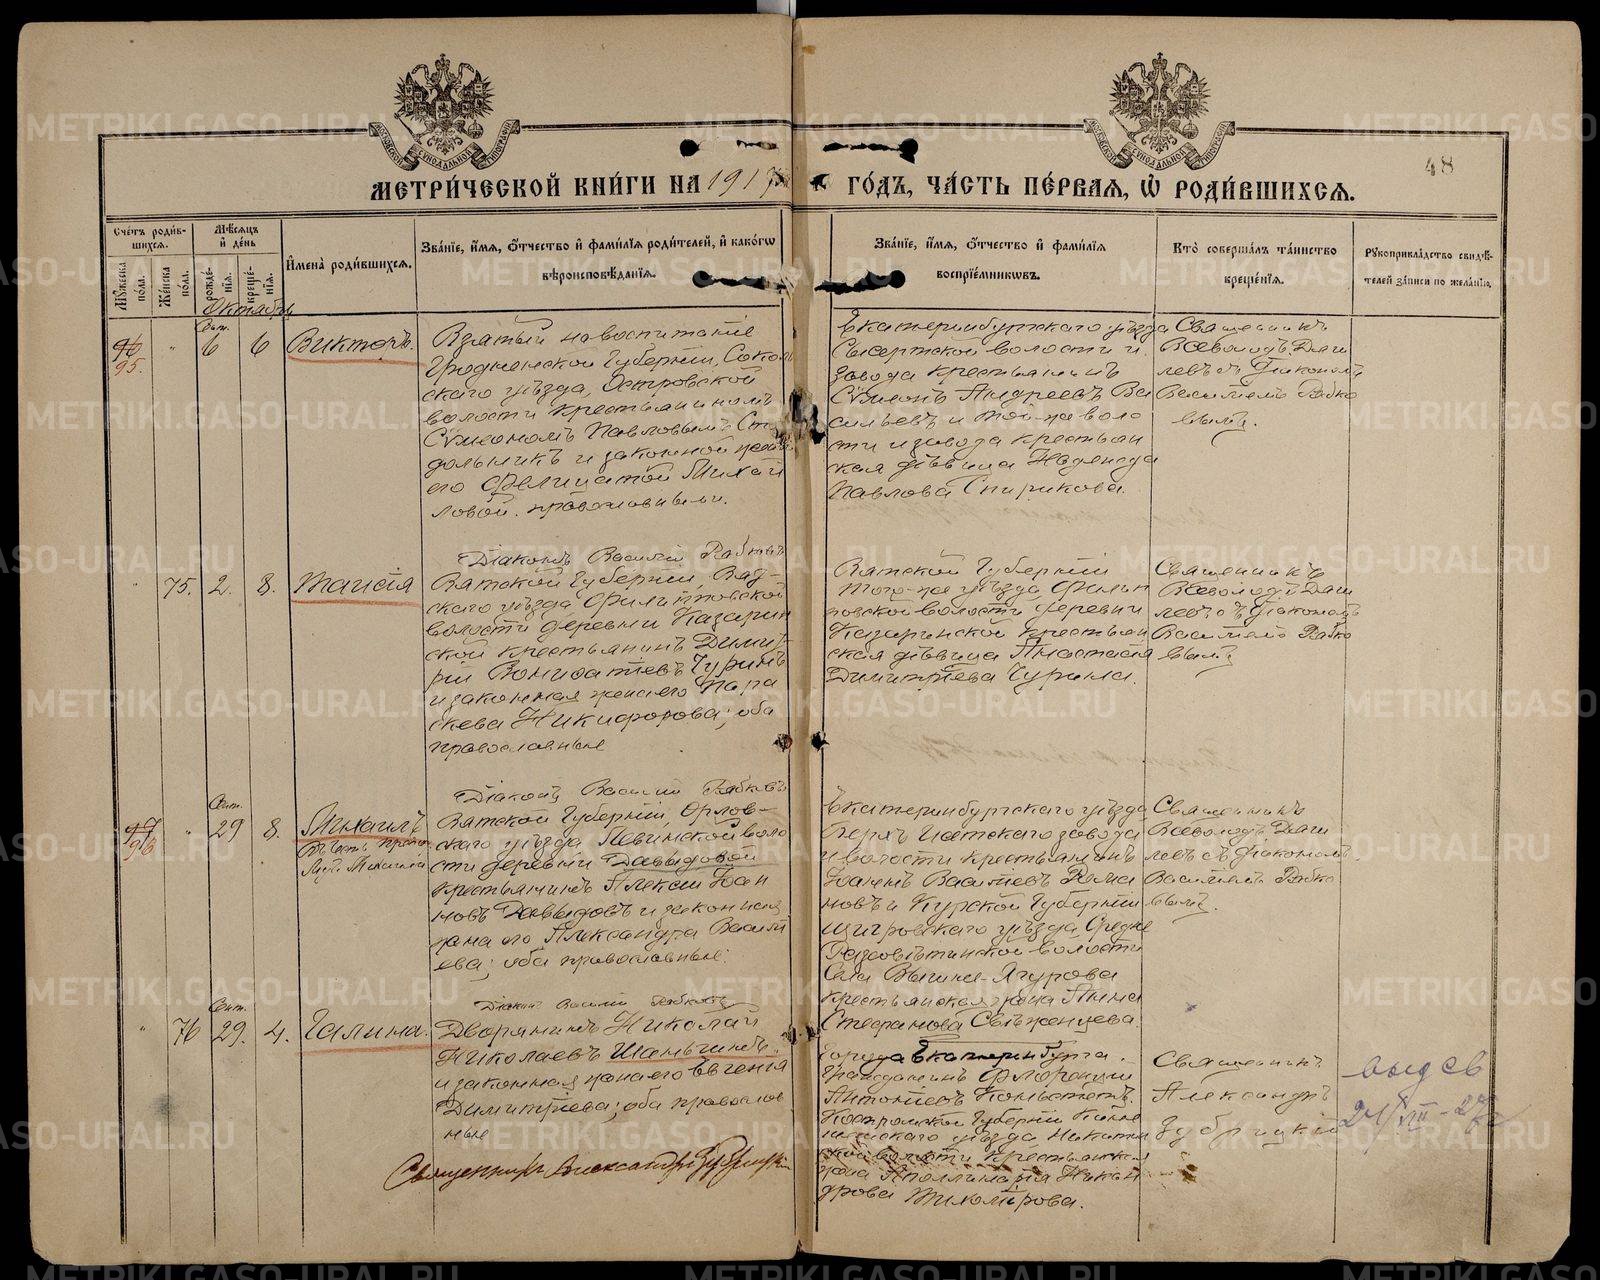 48
МЕТРИ́ЧЕСКОЙ КНИ́ГИ НА 1917 ГО́ДЪ, ЧА́СТЬ ПЕ́РВАЯ, Ѡ҆ РОДИ́ВШИХСѦ.
Сче́тъ роди́в-
шихсѧ.
Мꙋ́жеска по́ла.
Же́нска по́ла.
Мѣ́сѧцъ
и҆ де́нь
рожде́-
нїѧ.
креще́-
нїѧ.
И҆мена̀ роди́вшихсѧ.
Зва́нїе, и҆́мѧ, ѻ҆́тчество и҆ фами́лїѧ роди́телей, и҆ како́гѡ
вѣроисповѣ́данїѧ.
Зва́нїе, и҆́мѧ, ѻ҆́тчество и҆ фами́лїѧ
воспрїе́мникѡвъ.
Кто̀ соверша́лъ та́инство
креще́нїѧ.
Рꙋкоприкла́дство свидѣ́-
телей за́писи по жела́нїю.
Октябрь
96
95.
6
6
Викторъ.
Взятый на воспитаніе
Гродненской Губерніи, Соколь
скаго уѣзда, Островской
волости крестьяниномъ
Сѵмеономъ Павловымъ
и законной женой
его Фелицатой Михай
ловой. православными.
Екатеринбургскаго уѣзда
Сысертской волости и
завода крестьянинъ
Сѵмеонъ Андреевъ Ва
сильевъ и той-же воло
сти и завода крестьян
ская дѣвица Надежда
Павлова Спирикова.
Священникъ
Всеволодъ Даги
левъ съ Діакономъ
Василіемъ Рабко
вымъ.
Діаконъ Василій Рабковъ
75.
2.
8.
Таисія
Вятской Губерніи,
скаго уѣзда Филипповской
волости деревни Казарин
ской крестьянинъ Дими
рій Чуринъ
и законная жена его Пара
скева Никифорова; оба
православные
Вятской Губерніи
того-же уѣзда Филип
повской волости деревни
Казаринской крестьян
ская дѣвица Анастасія
Димитріева Чурина.
Священникъ
Всеволодъ Даги
левъ съ Діакономъ
Василіемъ Рабко
вымъ
Діаконъ Василій Рабковъ
97
96
Сент.
29
8.
Михаилъ
Вятской Губерніи, Орлов-
скаго уѣзда Левинской воло
сти деревни Давыдовой
крестьянинъ Алексій Іоан
новъ Давыдовъ и законная
жена его Александра Василі
ева; оба православные.
Екатеринбургскаго уѣзда
Верхъ Исетскаго завода
и волости крестьянинъ
Іоаннъ Василіевъ Рома
новъ и Курской Губерніи
Щигровскаго уѣзда Средне
волости
Села
крестьянская жена Анна
Стефанова Свѣженцева.
Священникъ
Всеволодъ Даги
левъ съ Діакономъ
Василіемъ Рабко
вымъ.
Діаконъ Василій Рабковъ
76
Сент.
29.
4.
Галина.
Дворянинъ Николай
Николаевъ Шаньгинъ
и законная жена его Евгенія
Димитріева; оба православ
ные
города Екатеринбурга
гражданинъ
Антоніевъ
Костромской Губерніи Кине
шемскаго уѣзда Никитин
ской волости крестьянская
жена Аполлинарія Никан
дрова Тихомірова.
Священникъ
Александръ
Зубрицкій
выд св
24/VIII-27г
Священникъ Александръ Зубрицкій
METRIKI.GASO-URAL.RU